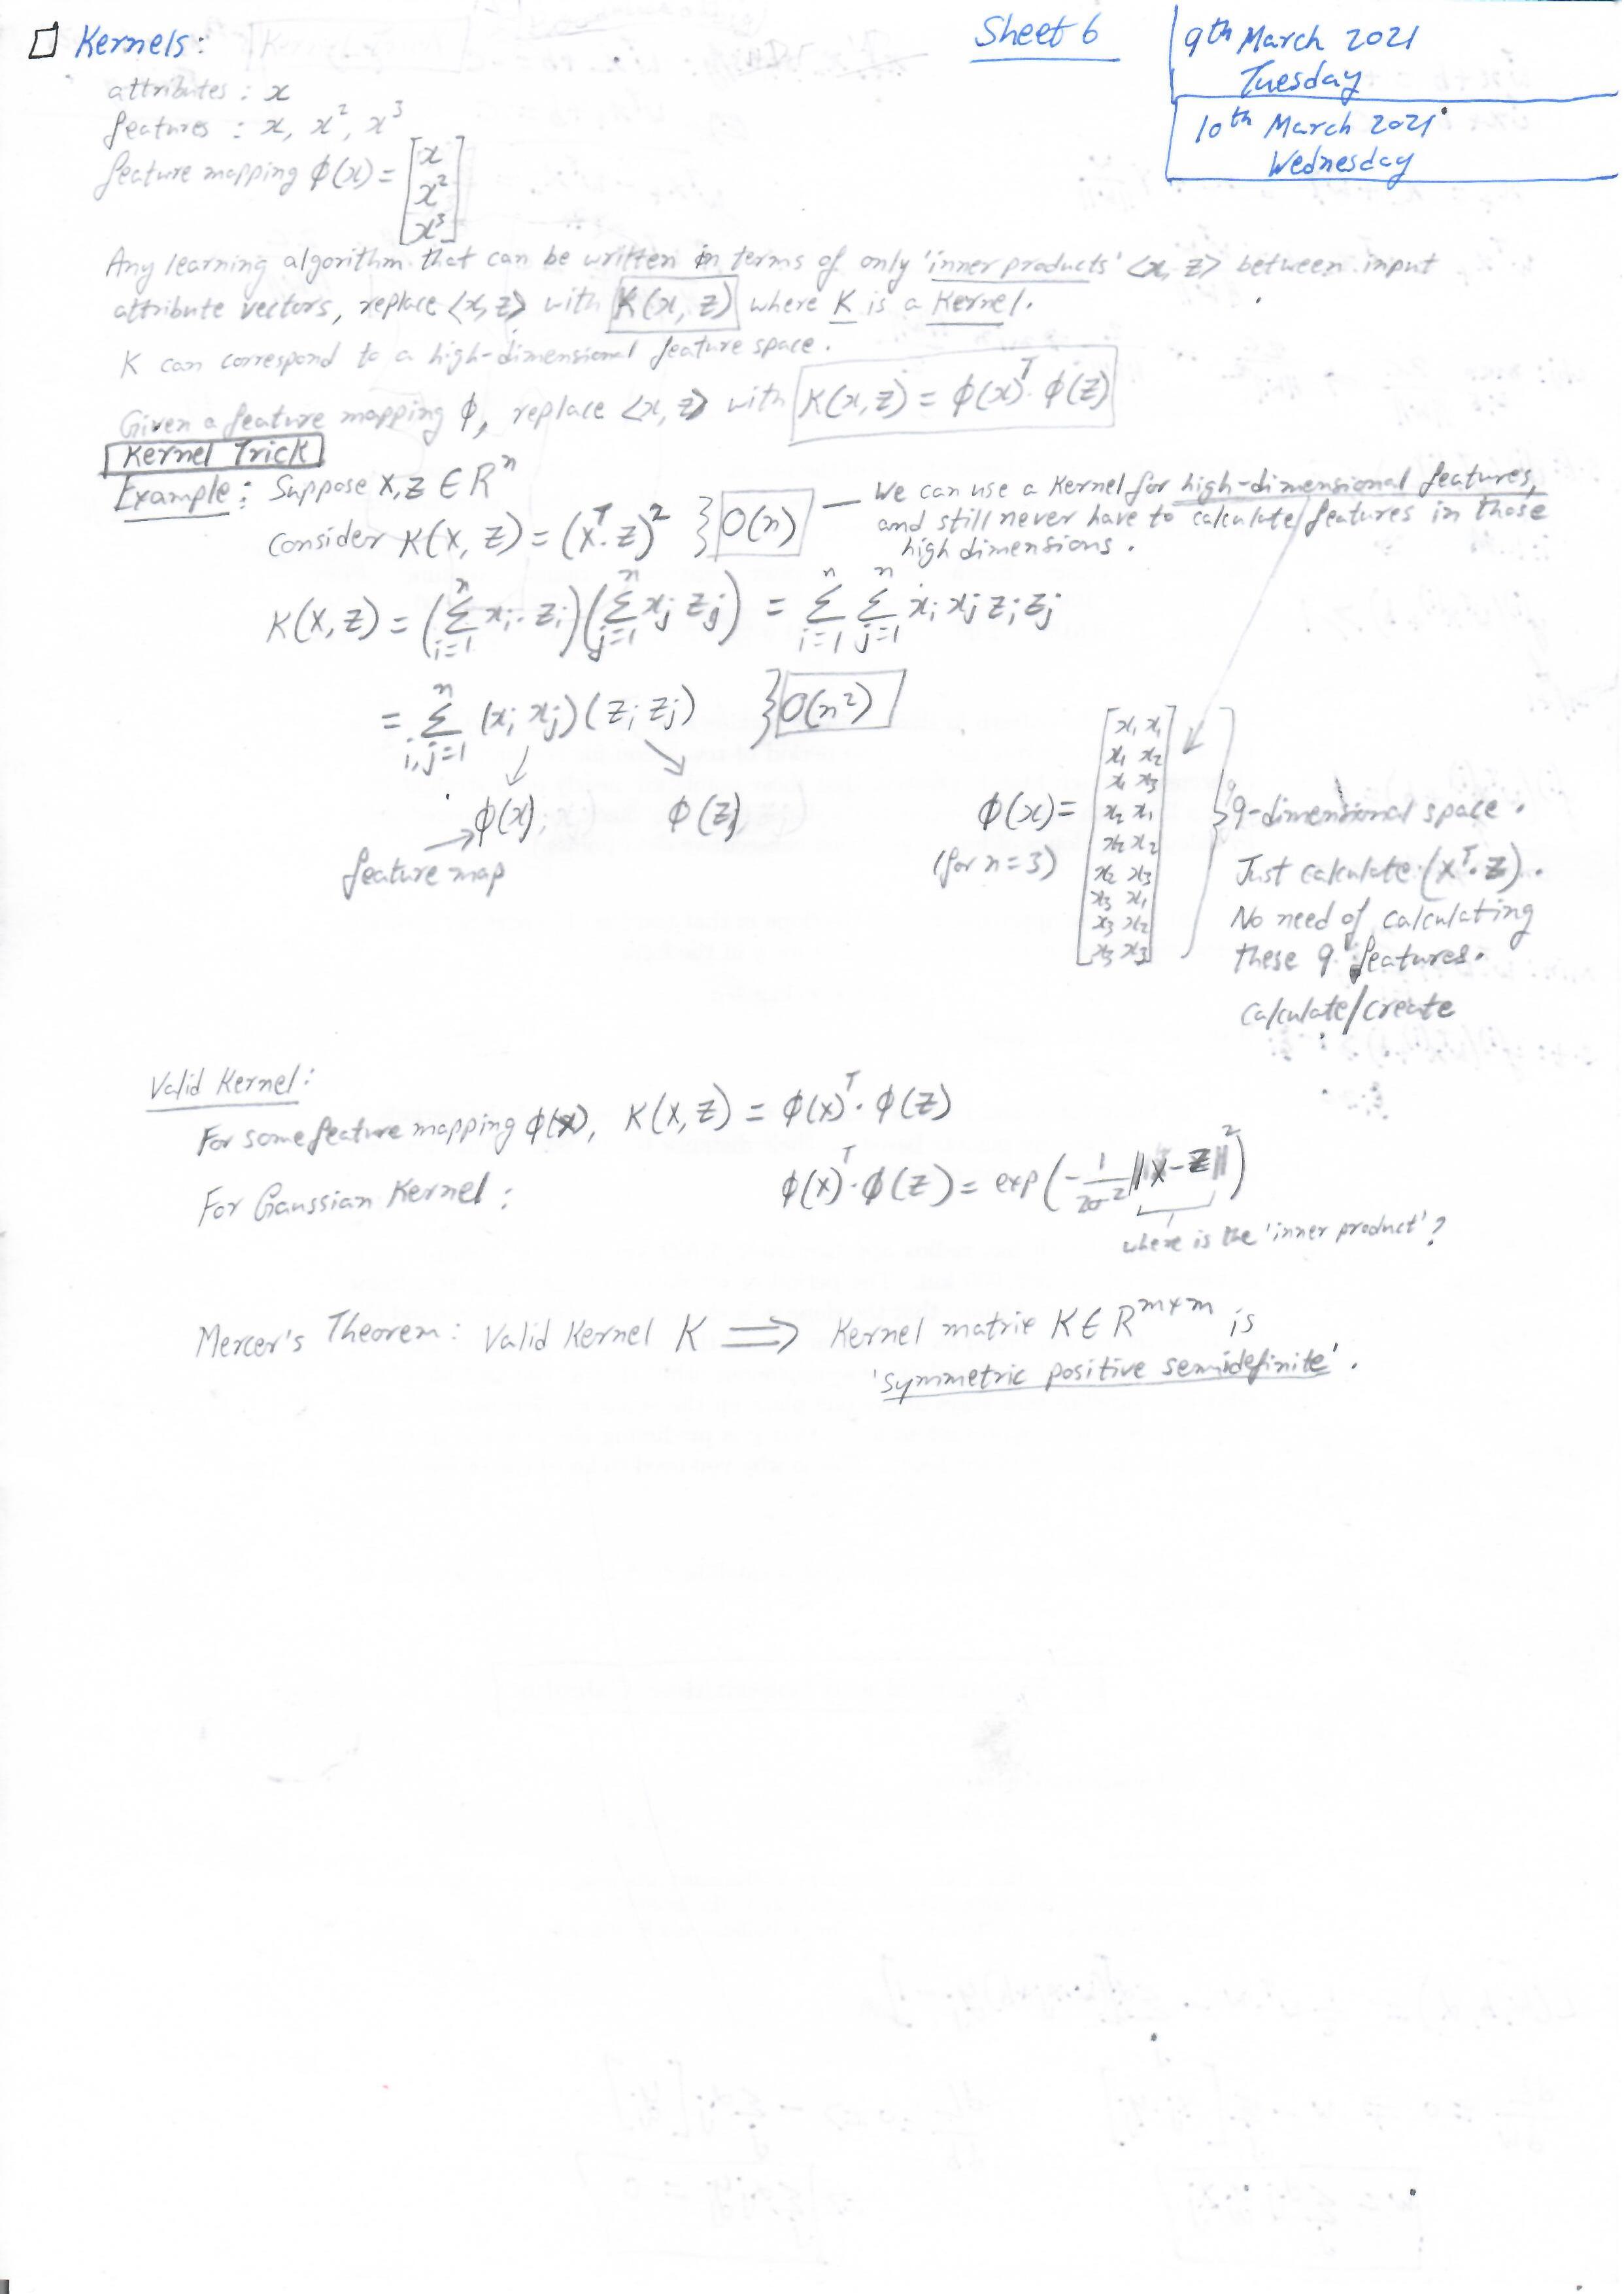 Kernels:
Sheet 6
9th March 2021
Tuesday
10th March 2021
Wednesday
attributes : x
features : x, x², x³
feature mapping ϕ(x) = [x
x²
x³]
Any learning algorithm that can be written in terms of only 'inner products' <x, z> between input
attribute vectors, replace <x, z> with K(x, z) where K is a Kernel.
K can correspond to a high-dimensional feature space.
Given a feature mapping ϕ, replace <x, z> with K(x, z) = ϕ(x)ᵀ · ϕ(z)
Kernel Trick
Example: Suppose X, Z ∈ Rⁿ
Consider K(X, Z) = (Xᵀ. Z)² } O(n)
— We can use a Kernel for high-dimensional features,
and still never have to calculate features in those
high dimensions.
K(X, Z) = (Σⁿᵢ₌₁ xᵢ. zᵢ)(Σⁿⱼ₌₁ xⱼ zⱼ) = Σⁿᵢ₌₁ Σⁿⱼ₌₁ xᵢ xⱼ zᵢ zⱼ
= Σⁿᵢ,ⱼ₌₁ (xᵢ xⱼ)(zᵢ zⱼ) } O(n²)
ϕ(x) ϕ(z)
feature map
ϕ(x) =
(for n=3)
x₁ x₁
x₁ x₂
x₁ x₃
x₂ x₁
x₂ x₂
x₂ x₃
x₃ x₁
x₃ x₂
x₃ x₃
9-dimensional space.
Just calculate (Xᵀ. Z).
No need of calculating
these 9 features.
Calculate/Create
Valid Kernel:
For some feature mapping ϕ(x), K(X, Z) = ϕ(x)ᵀ · ϕ(z)
For Gaussian Kernel: ϕ(x)ᵀ · ϕ(z) = exp(-1/2σ² ||X-Z||²)
where is the 'inner product'?
Mercer's Theorem: Valid Kernel K ⟹ Kernel matrix K ∈ Rᵐ×ᵐ is
'symmetric positive semidefinite'.